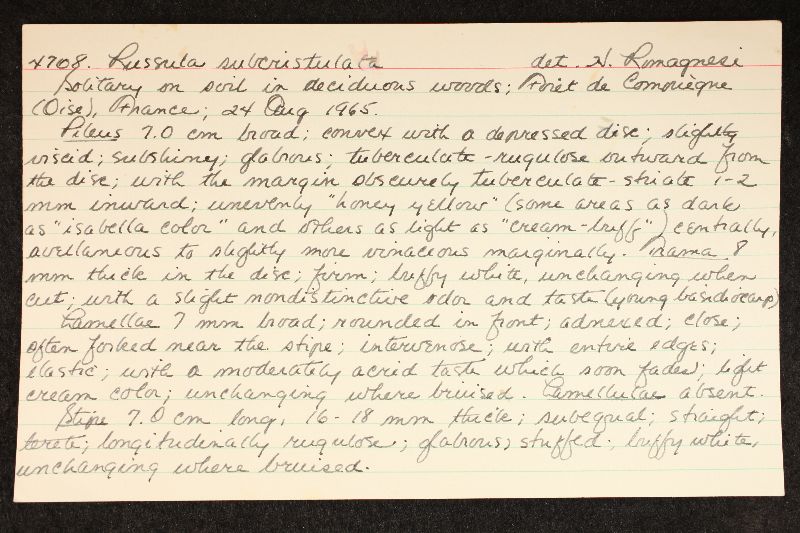 4708. Russula subcristulata det. H. Romagnesi
Solitary on soil in deciduous woods; Forêt de Compiègne
(Oise), France; 24 Aug 1965.
Pileus 7.0 cm broad; convex with a depressed disc; slightly
viscid; subshiney; glabrous; tuberculate-rugulose outward from
the disc; with the margin obscurely tuberculate-striate 1-2
mm inward; unevenly "honey yellow" (some areas as dark
as "isabella color" and others as light as "cream-buff") centrally,
avellaneous to slightly more vinaceous marginally. Trama 8
mm thick in the disc; firm; buffy white, unchanging when
cut; with a slight nondistinctive odor and taste (young basidiocarp)
Lamellae 7 mm broad; rounded in front; adnexed; close;
often forked near the stipe; intervenose; with entire edges;
elastic; with a moderately acrid taste which soon fades; light
cream color; unchanging where bruised. Lamellulae absent.
Stipe 7.0 cm long, 16-18 mm thick; subequal; straight;
terete; longitudinally rugulose; glabrous; stuffed; buffy white,
unchanging where bruised.